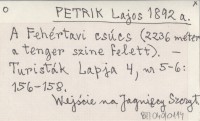 PETRIK Lajos 1892 a.
A Fehértavi csúcs (2236 méter
a tenger szine felett). —
Turisták Lapja 4, nr 5-6:
156-158.
Wejście na Jagnięcy Szczyt.